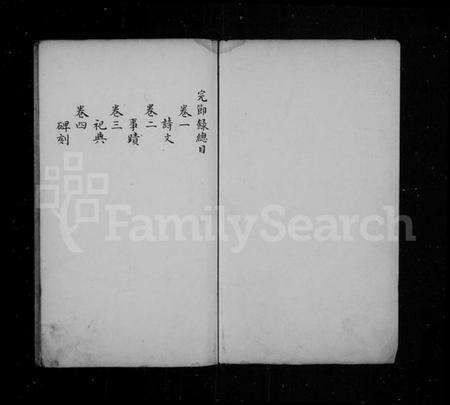 完節錄總目
卷一
詩文
卷二
事蹟
卷三
祀典
卷四
碑刻
FamilySearch